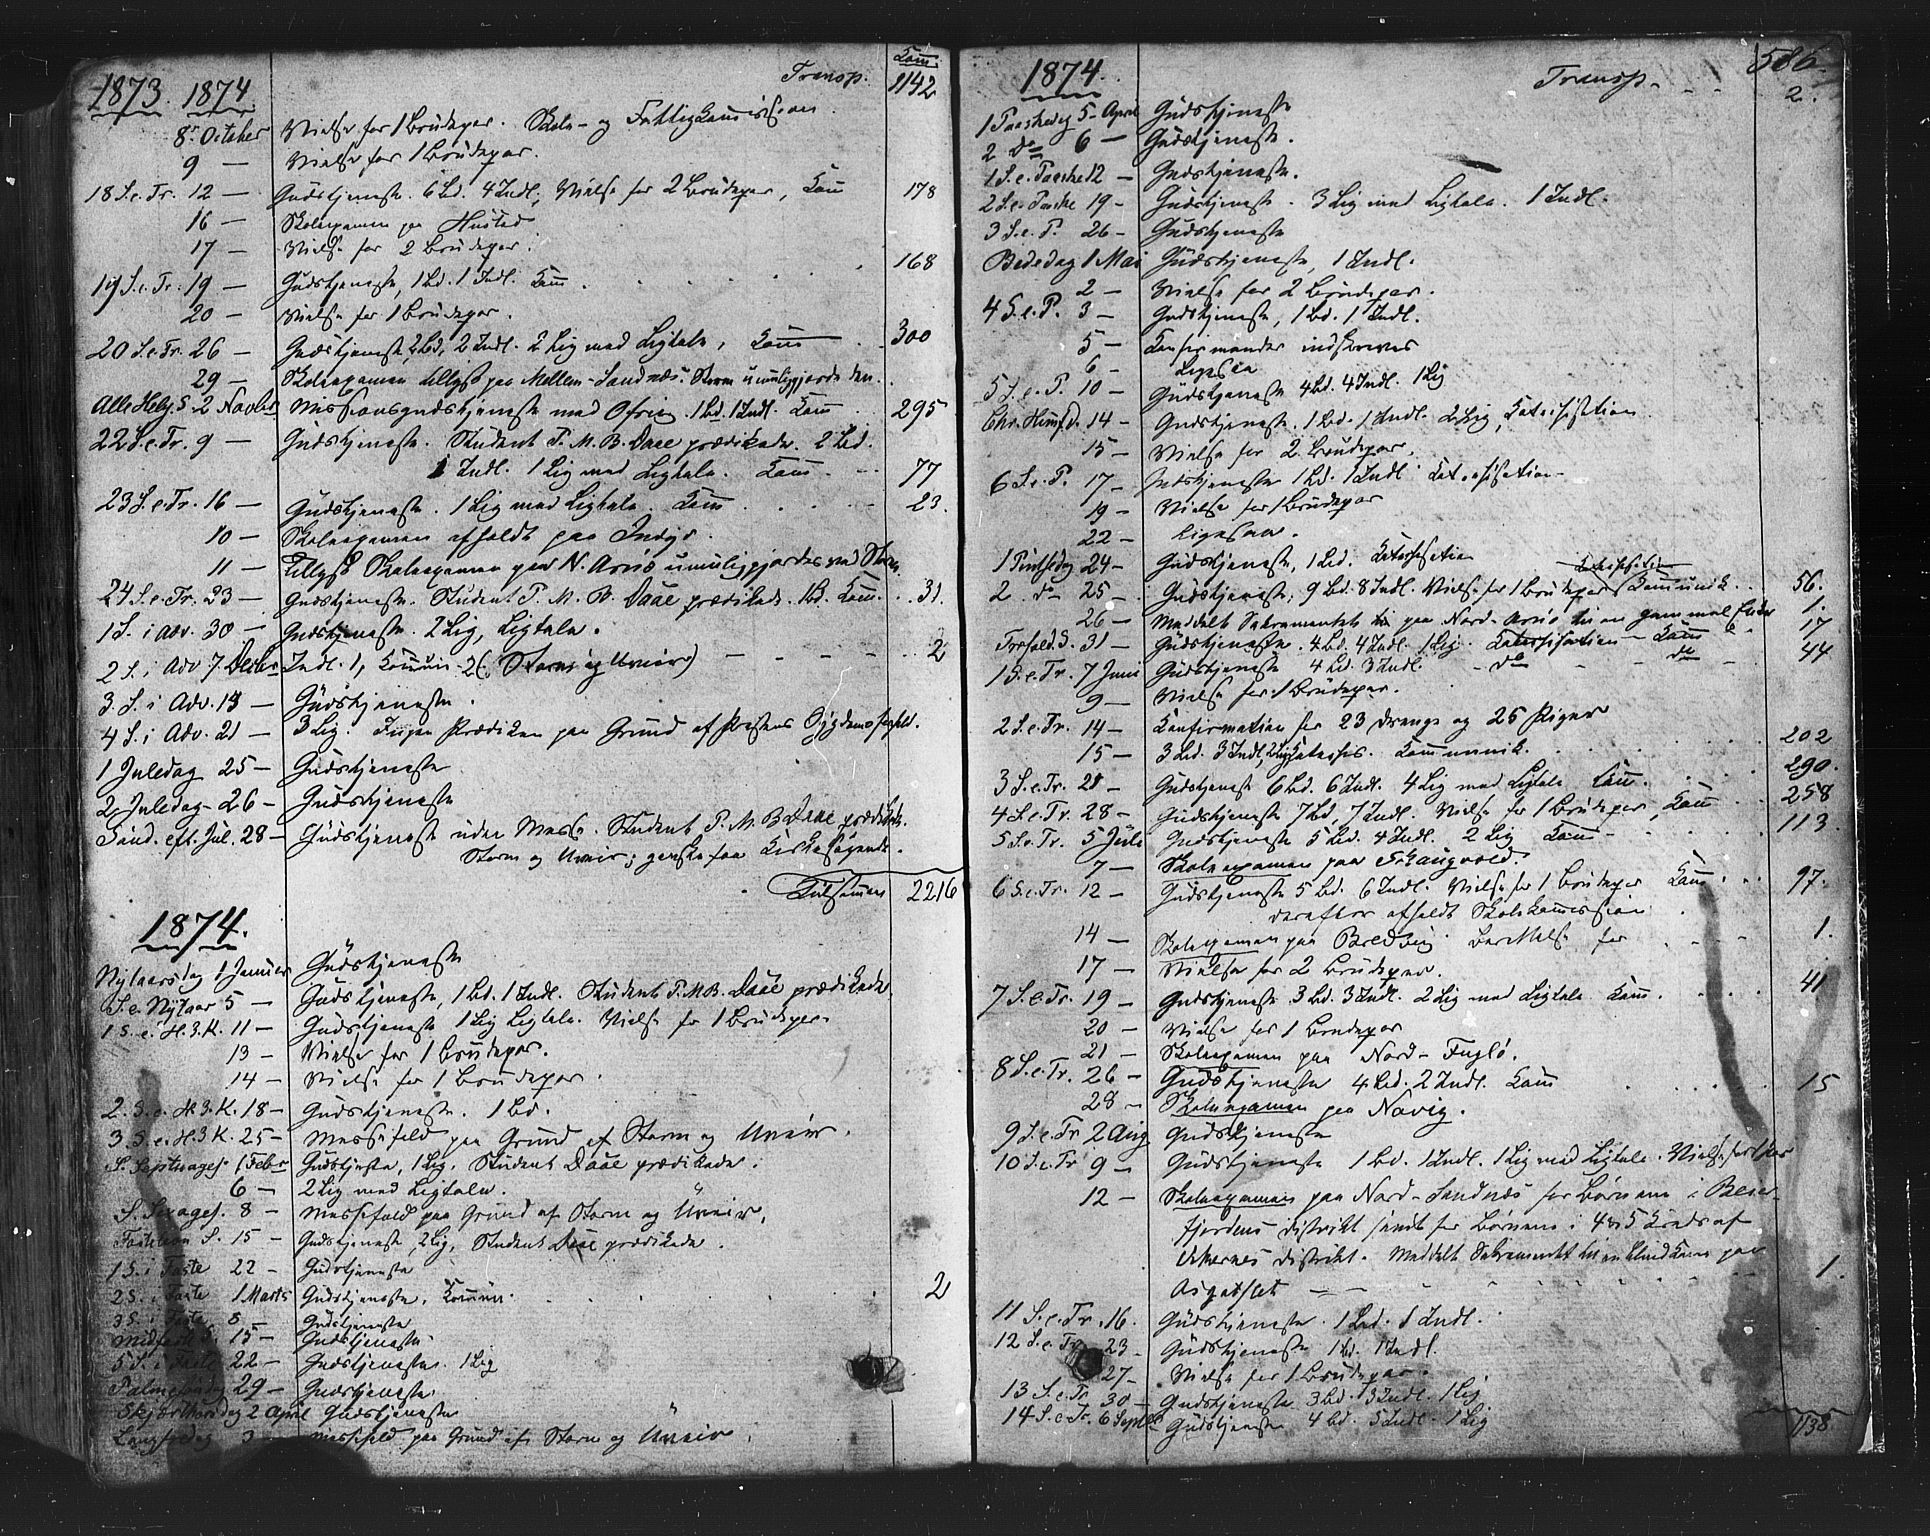 1873. 1874 Transp. Kom. 1142
8r October Vielse for 1 Brudepar. Skole- og Fattigkommission
9 — Vielse for 1 Brudepar.
18 S. e. Tr. 12 — Gudstjeneste. 6 Bd. 4 Indl., Vielse for 2 Brudepar, Kom 178
16 — Skolexamen paa Husted
17 — Vielse for 2 Brudepar.
19 S. e. Tr. 19 — Gudstjeneste, 1 Bd. 1 Indl. Kom . . . . 168
20 — Vielse for 1 Brudepar.
20 S. e Tr. 26 — Gudstjeneste, 2 Bd, 2 Indl. 2 Lig med Ligtale, Kom — 300
29 — Skolexamen tillyst paa Mellem-Sandnæs. Storm umuligjorde den.
Alle Helg. S. 2 Novbr Missionsgudstjeneste med Offring. 1 Bd. 1 Indl. Kom . 295
22 S. e. Tr. 9 — Gudstjeneste. Student P. M. B. Daae prædikede. 2 Bd.
1 Indl. 1 Lig med Ligtale. Kom. - - 77
23 S. e. Tr. 16 — Gudstjeneste. 1 Lig med Ligtale. Kom . . . 23.
10 — Skolexamen afholdt paa Indyr.
11 — Tillyst Skolexamen paa N. Arnø umuligjordes ved Storm
24 S. e. Tr. 23 — Gudstjeneste. Student P. M. B. Daae prædikede. 1 Bd. Kom. . . 31.
1 S. i Adv. 30 — Gudstjeneste. 2 Lig, Ligtale.
2 S. i Adv 7 Decbr Indl. 1, Kommun. 2 (: Storm og Uveir) - - - - . . 2
3. S. i Adv. 14 — Gudstjeneste.
4 S. i Adv. 21 — 3 Lig. Ingen Prædiken paa Grund af Præstens Sygdomsforfald.
1 Juledag 25 — Gudstjeneste
2 Juledag - 26 — Gudstjeneste
Sønd. eft. Jul. 28 — Gudstjeneste uden Messe. Student P. M. B Daae prædikede.
Storm og Uveir; ganske faa Kirkesøgende.
Tilsammen 2216
1874.
Nytaarsdag 1 Januar Gudstjeneste
S. e. Nytaar 5 — Gudstjeneste, 1 Bd. 1 Indl. Student P. M. B. Daae prædikede.
1 S. e. H. 3. K. 11 — Gudstjeneste 1 Lig Ligtale. Vielse for 1 Brudepar.
13 — Vielse for 1 Brudepar.
14 — Vielse for 1 Brudepar.
2. S. e. H. 3. K. 18 — Gudstjeneste. 1 Bd.
3 S. e. H. 3 K. 25 — Messefald paa Grund af Storm og Uveir.
S. Septuages. 1 Febr Gudstjeneste, 1 Lig. Student Daae prædikede.
6 — 2 Lig med Ligtale.
S. Sexages. 8 — Messefald paa Grund af Storm og Uveir.
Fastelavn S. 15 — Gudstjeneste, 2 Lig, Student Daae prædikede.
1 S. i Faste 22 — Gudstjeneste
2 S. i Faste 1 Marts Gudstjeneste. Kommun. . . . . 2
3 S. i Faste 8 — Gudstjeneste
Midfaste S. 15 — Gudstjeneste
5 S. i Faste 22 — Gudstjeneste. 1 Lig
Palmesøndag 29 — Gudstjeneste.
Skjærthorsdag 2 April Gudstjeneste
Langfredag 3 — Messefald paa Grund af Storm og Uveir.
586.
1874. Transp. - - - 2.
1 Paaskedag 5 - April Gudstjeneste
2 do 6 — Gudstjeneste.
1 S. e. Paaske 12 — Gudstjeneste.
2 S. e. Paaske 19 — Gudstjeneste. 3 Lig med Ligtale. 1 Indl.
3 S. e. P. 26 — Gudstjeneste
Bededag 1 Mai Gudstjeneste, 1 Indl.
2 — Vielse for 2 Brudepar.
4 S. e. P. 3 — Gudstjeneste, 1 Bd. 1 Indl.
5 — Konfirmander indskreves
6 — Ligesaa
5 S. e. P. 10 — Gudstjeneste 4 Bd. 4 Indl. 1 Lig
Chr. Himfd. 14 — Gudstjeneste. 1 Bd. 1 Indl. 2 Lig, Katechisation
15 — Vielse for 2 Brudepar.
6 S. e. P. 17 — Gudstjeneste 1 Bd. 1 Indl Katechisation
19 — Vielse for 1 Brudepar
22 — Ligesaa.
1 Pintsedag 24 — Gudstjeneste, 1 Bd. Katechisation
2 do 25 — Gudstjeneste, 9 Bd. 8 Indl. Vielse for 1 Brudepar, Kommunik. . . 56.
26 — Meddelt Sakramentet paa Nord-Arnø til en gammel Enke 1.
Trefold. S. 31 — Gudstjeneste. 4 Bd. 4 Indl. 1 Lig. Katechisation — Kom 17
1 S. e. Tr. 7 Juni Gudstjeneste 4 Bd. 3 Indl. - do - - do - 44
9 — Vielse for 1 Brudepar.
2 S. e. Tr. 14 — Konfirmation for 23 Drenge og 26 Piger
15 — 3 Bd. 3 Indl, 2 Lig Kateches. Kommunik. . . . 202
3 S. e Tr. 21 — Gudstjeneste 6 Bd. 6 Indl. 4 Lig med Ligtale Kom. . . . 290.
4 S. e Tr. 28 — Gudstjeneste 7 Bd, 7 Indl. Vielse for 1 Brudepar, Kom . . 258
5 S. e. Tr. 5 Juli Gudstjeneste 5 Bd. 4 Indl. 2 Lig Kom - . . . 113.
7 — Skolexamen paa
6 S. e. Tr. 12 — Gudstjeneste 5 Bd. 6 Indl. Vielse for 1 Brudepar Kom. . . 97.
derefter afholdt Skolekommission
14 — Skolexamen paa Bredvig Berettelse for . . - - 1.
17 — Vielse for 2 Brudepar.
7 S. e Tr. 19 — Gudstjeneste 3 Bd. 3 Indl. 2 Lig med Ligtale Kom. . . . 41
20 — Vielse for 1 Brudepar
21 — Skolexamen paa Nord-Fuglø.
8 S. e. Tr. 26 — Gudstjeneste 4 Bd. 2 Indl. Kom . . . . 15
28 — Skolexamen paa Novig.
9 S. e. Tr 2 Aug Gudstjeneste
10 S. e Tr 9 — Gudstjeneste 1 Bd. 1 Indl. 1 Lig med Ligtale. Vielse for 1 Par
12 — Skolexamen paa Nord-Sandnæs for Børnene i Beier-
fjordens Distrikt samt for Børnene i 4 & 5 Kreds af
Distrikt. Meddelt Sakramentet til en blind Kone paa
1.
11 S. e. Tr. 16. Gudstjeneste. 1 Bd. 1 Indl.
12 S. e Tr 23 — Gudstjeneste 1 Bd. 1 Indl.
27 — Vielse for 1 Brudepar.
13 S. e. Tr 30 — Gudstjeneste 3 Bd. 3 Indl. 1 Lig
14 S. e Tr. 6 Septbr Gudstjeneste 4 Bd. 5 Indl. 1 Lig
1138.